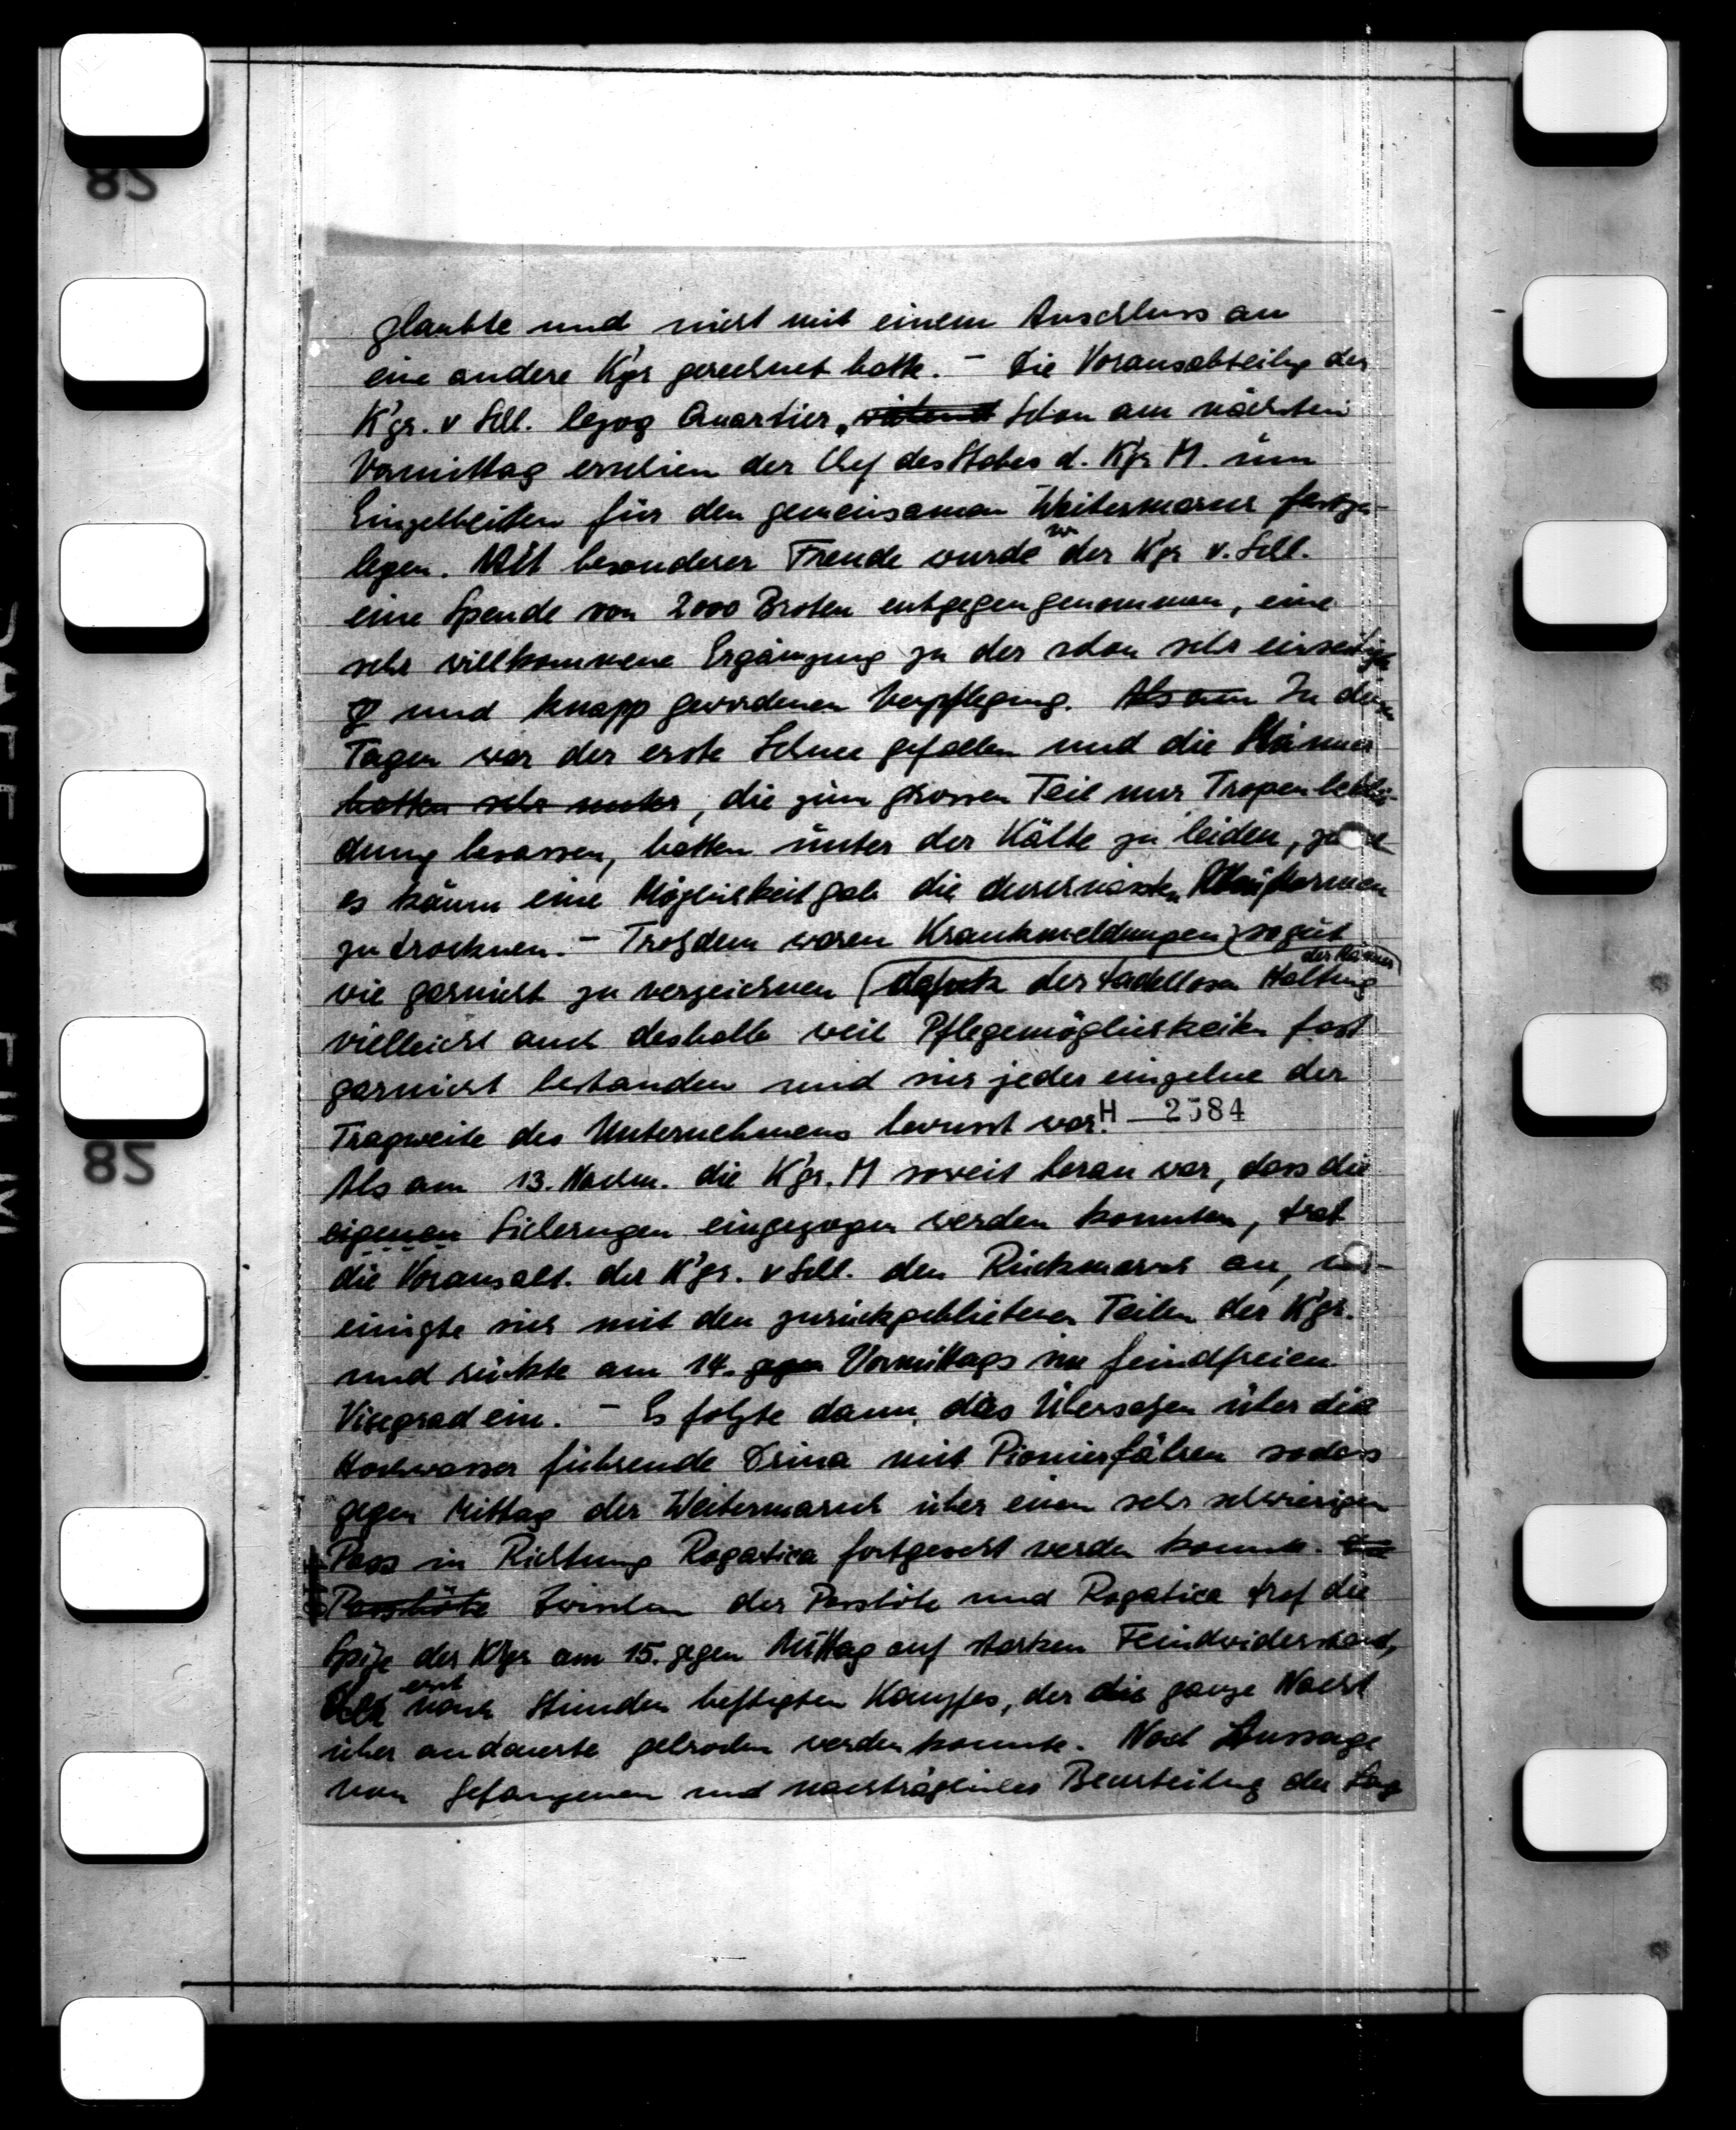 glaubte und nicht mit einem Anschluss an
eine andere K'gr gerechnet hatte. – Die Vorausabteilg der
K'gr. v Sell. bezog Quartier, Schon am nächsten
Vormittag erschien der Chef des Stabes d. K'gr M. um
Einzelheiten für den gemeinsamen Weitermarsch festzu-
legen. Mit besonderer Freude wurde v der K'gr v. Sell.
eine Spende von 2000 Broten entgegengenommen, eine
sehr willkommene Ergänzung zu der schon sehr einseitig
und knapp gewordenen Verpflegung. Als am In diesen
Tagen war der erste Schnee gefallen und die Männer
hatten sehr unter, die zum grossen Teil nur Tropenbeklei-
dung besassen, hatten unter der Kälte zu leiden, zumal
es kaum eine Möglichkeit gab die durchnässten Uniformen
zu trocknen. – Trotzdem waren Krankmeldungen sogut
wie garnicht zu verzeichnen (dank der tadellosen Haltung der Männer)
vielleicht auch deshalb weil Pflegemöglichkeiten fast
garnicht bestanden und sich jeder einzelne der
Tragweite des Unternehmens bewusst war. H – 2584
Als am 13. Nachm. die K'gr. M soweit heran war, dass die
eigenen Sicherungen eingezogen werden konnten, trat
die Vorausabt. der K'gr. v Sell. den Rückmarsch an, ver-
einigte sich mit den zurückgebliebenen Teilen der K'gr.
und rückte am 14. gegen Vormittags im feindfreien
Visegrad ein. – Es folgte dann das Übersetzen über die
Hochwasser führende Drina mit Pionierfähren sodass
gegen Mittag der Weitermarsch über einen sehr schwierigen
Pass in Richtung Rogatica fortgesetzt werden konnte. Die
Passhöhe Zwischen der Passhöhe und Rogatica traf die
Spitze der K'gr am 15. gegen Mittag auf starken Feindwiderstand,
der erst nach Stunden heftigsten Kampfes, der die ganze Nacht
über andauerte gebrochen werden konnte. Nach Aussage
von Gefangenen und nachträglicher Beurteilung der Lage
82
82